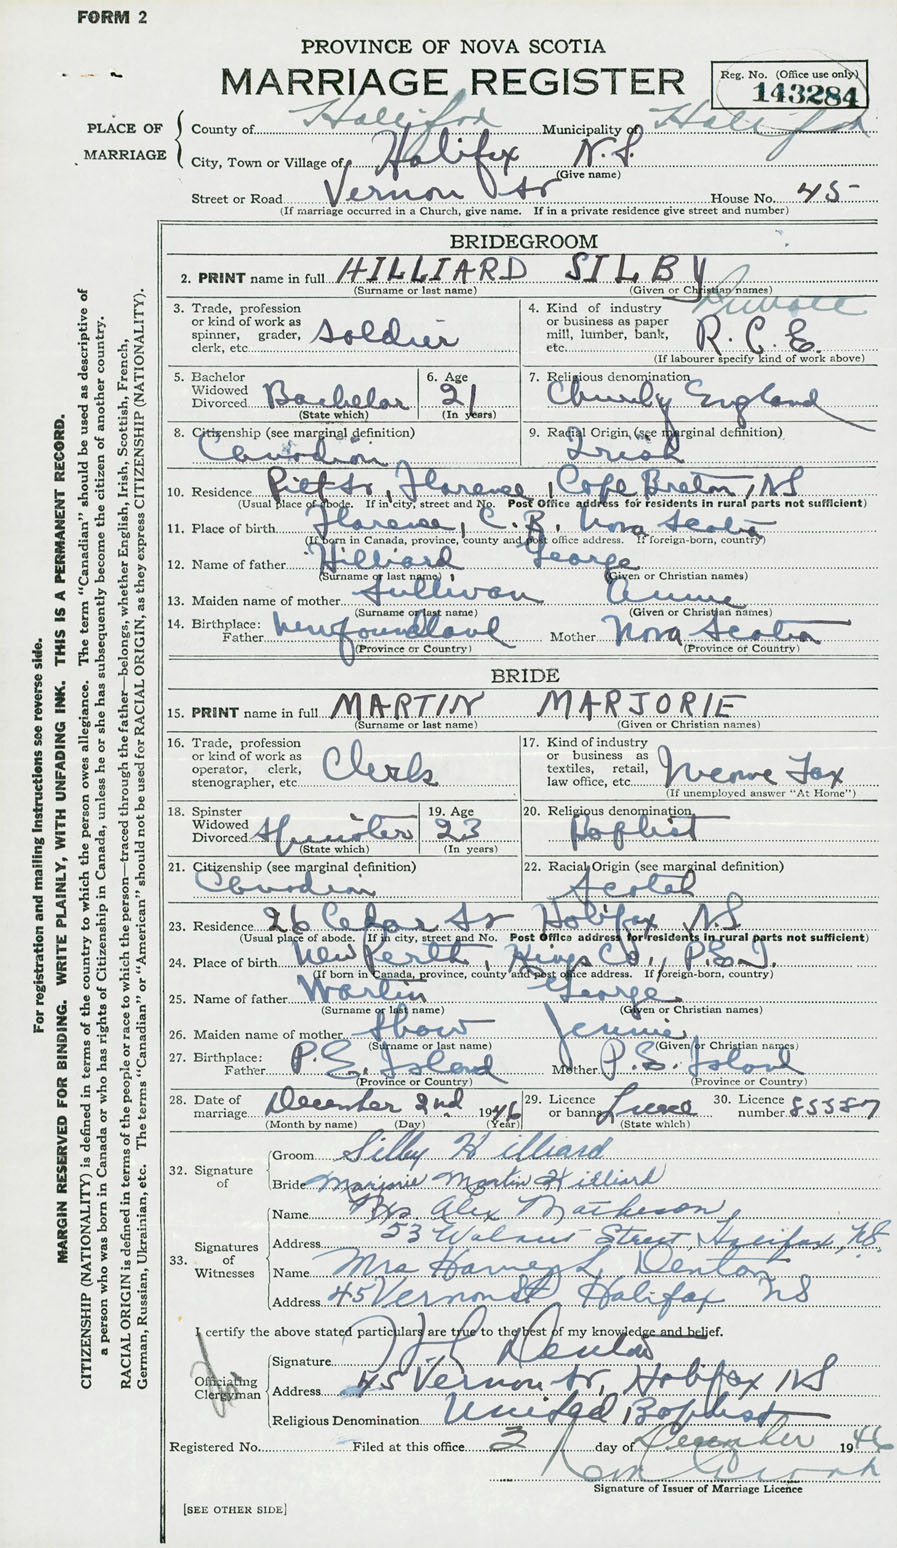 FORM 2
PROVINCE OF NOVA SCOTIA
MARRIAGE REGISTER
Reg. No. (Office use only)
143284
PLACE OF MARRIAGE
County of Halifax Municipality of Halifax
City, Town or Village of Halifax N.S.
(Give name)
Street or Road Vernon St House No. 45
(If marriage occurred in a Church, give name. If in a private residence give street and number)
BRIDEGROOM
2. PRINT name in full HILLIARD SILBY
(Surname or last name) (Given or Christian names)
3. Trade, profession or kind of work as spinner, grader, clerk, etc. Soldier
4. Kind of industry or business as paper mill, lumber, bank, etc. Private R.C.E.
(If labourer specify kind of work above)
5. Bachelor Widowed Divorced Bachelor
(State which)
6. Age 21
(In years)
7. Religious denomination Church England
8. Citizenship (see marginal definition) Canadian
9. Racial Origin, (see marginal definition) Irish
10. Residence Pitt St, Florence, Cape Breton, NS
(Usual place of abode. If in city, street and No. Post Office address for residents in rural parts not sufficient)
11. Place of birth Florence, C.B. Nova Scotia
(If born in Canada, province, county and post office address. If foreign-born, country)
12. Name of father Hilliard George
(Surname or last name) (Given or Christian names)
13. Maiden name of mother Sullivan Annie
(Surname or last name) (Given or Christian names)
14. Birthplace: Father Newfoundland Mother Nova Scotia
(Province or Country) (Province or Country)
BRIDE
15. PRINT name in full MARTIN MARJORIE
(Surname or last name) (Given or Christian names)
16. Trade, profession or kind of work as operator, clerk, stenographer, etc. Clerk
17. Kind of industry or business as textiles, retail, law office, etc. Income Tax
(If unemployed answer "At Home")
18. Spinster Widowed Divorced Spinster
(State which)
19. Age 23
(In years)
20. Religious denomination Baptist
21. Citizenship (see marginal definition) Canadian
22. Racial Origin (see marginal definition) Scotch
23. Residence 26 Cedar St Halifax NS
(Usual place of abode. If in city, street and No. Post Office address for residents in rural parts not sufficient)
24. Place of birth New Perth, Kings Co., P.E.I.
(If born in Canada, province, county and post office address. If foreign-born, country)
25. Name of father Martin George
(Surname or last name) (Given or Christian names)
26. Maiden name of mother Shaw Jennie
(Surname or last name) (Given or Christian names)
27. Birthplace: Father P.E. Island Mother P.E. Island
(Province or Country) (Province or Country)
28. Date of marriage December 2nd 1946
(Month by name) (Day) (Year)
29. Licence or banns License
(State which)
30. Licence number 85587
32. Signature of
Groom Silby Hilliard
Bride Marjorie Martin Hilliard
33. Signatures of Witnesses
Name Mrs Alex Matheson
Address 53 Walnut Street, Halifax, NS.
Name Mrs Harvey L. Denton
Address 45 Vernon St Halifax NS
I certify the above stated particulars are true to the best of my knowledge and belief.
Officiating Clergyman
Signature H L Denton
Address 45 Vernon St, Halifax NS
Religious Denomination United Baptist
Registered No. Filed at this office 3 day of December 1946
Signature of Issuer of Marriage Licence
[SEE OTHER SIDE]
For registration and mailing instructions see reverse side.
MARGIN RESERVED FOR BINDING. WRITE PLAINLY, WITH UNFADING INK. THIS IS A PERMANENT RECORD.
CITIZENSHIP (NATIONALITY) is defined in terms of the country to which the person owes allegiance. The term "Canadian" should be used as descriptive of
a person who was born in Canada or who has rights of Citizenship in Canada, unless he or she has subsequently become the citizen of another country.
RACIAL ORIGIN is defined in terms of the people or race to which the person—traced through the father—belongs, whether English, Irish, Scottish, French,
German, Russian, Ukrainian, etc. The terms "Canadian" or "American" should not be used for RACIAL ORIGIN, as they express CITIZENSHIP (NATIONALITY).